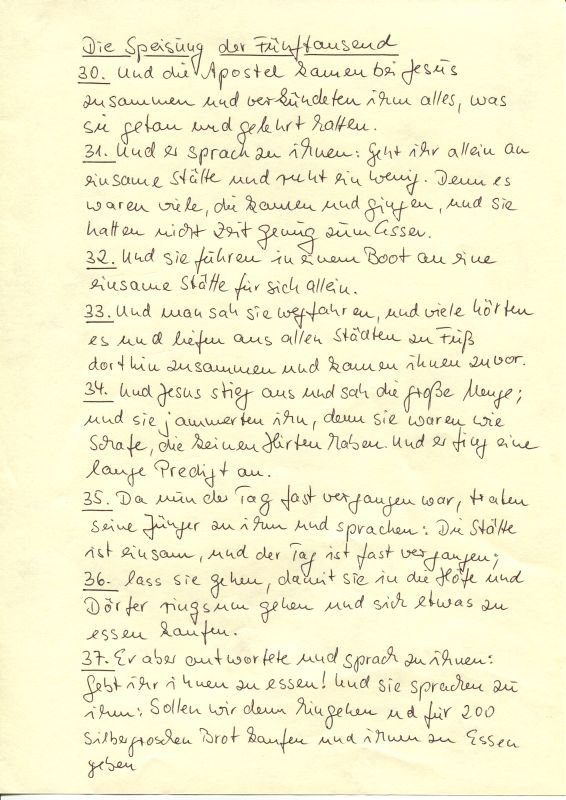 Die Speisung der Fünftausend
30. Und die Apostel kamen bei Jesus
zusammen und verkündeten ihm alles, was
sie getan und gelehrt hatten.
31. Und er sprach zu ihnen: Geht ihr allein an
einsame Stätte und ruht ein wenig. Denn es
waren viele, die kamen und gingen, und sie
hatten nicht Zeit genug zum Essen.
32. Und sie fuhren in einem Boot an eine
einsame Stätte für sich allein.
33. Und man sah sie wegfahren, und viele hörten
es und liefen aus allen Städten zu Fuß
dorthin zusammen und kamen ihnen zuvor.
34. Und Jesus stieg aus und sah die große Menge;
und sie jammerten ihn, denn sie waren wie
Schafe, die keinen Hirten haben. Und er fing eine
lange Predigt an.
35. Da nun der Tag fast vergangen war, traten
seine Jünger zu ihm und sprachen: Die Stätte
ist einsam, und der Tag ist fast vergangen;
36. lass sie gehen, damit sie in die Höfe und
Dörfer ringsum gehen und sich etwas zu
essen kaufen.
37. Er aber antwortete und sprach zu ihnen:
Gebt ihr ihnen zu essen! Und sie sprachen zu
ihm: Sollen wir denn hingehen nd für 200
Silbergroschen Brot kaufen und ihnen zu Essen
geben